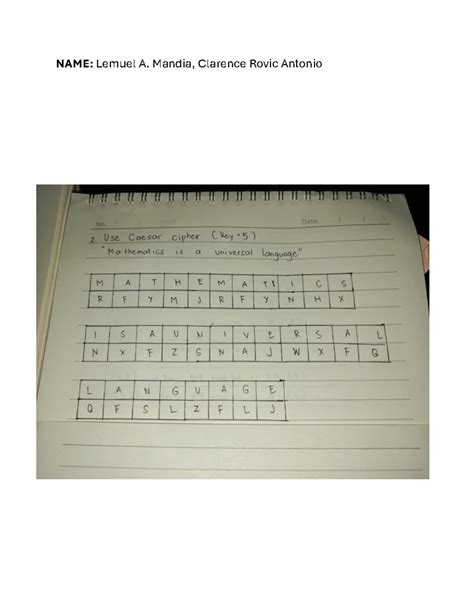 NAME: Lemuel A. Mandia, Clarence Rovic Antonio
No. Date: / /
2. Use Caesar cipher (key = 5)
"Mathematics is a universal language"
M A T H E M A T I C S
R F Y M J R F Y N H X
I S A U N I V E R S A L
N X F Z S N A J W X F Q
L A N G U A G E
Q F S L Z F L J